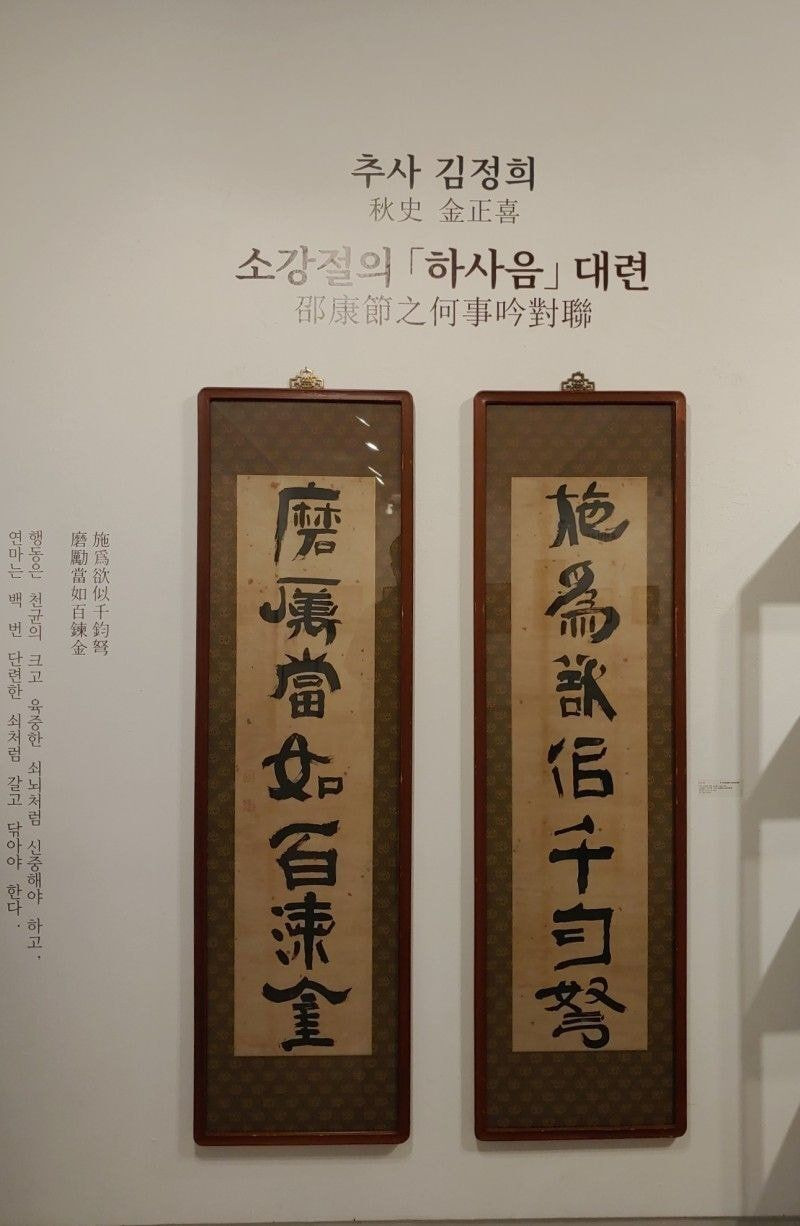 추사 김정희
秋史 金正喜
소강절의 「하사음」 대련
邵康節之何事吟對聯
施爲欲佀千勻弩
磨厲當如百湅金
施爲欲似千鈞弩
磨勵當如百鍊金
행동은 천균의 크고 육중한 쇠뇌처럼 신중해야 하고,
연마는 백 번 단련한 쇠처럼 갈고 닦아야 한다.